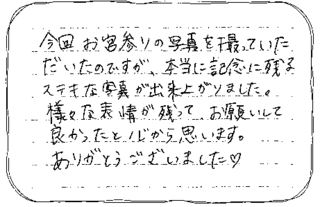 今回お宮参りの写真を撮っていた
だいたのですが、本当に記念に残る
ステキな写真が出来上がりました。
様々な表情が残って、お願いして
良かったと心から思います。
ありがとうございました♡